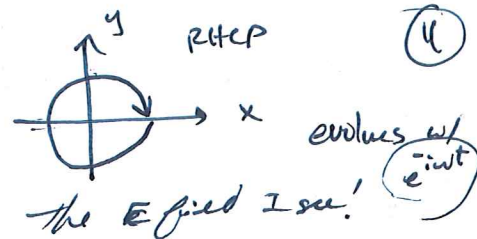 y
RHCP
4
x
evolves w/
e^{-iωt}
the E field I see!